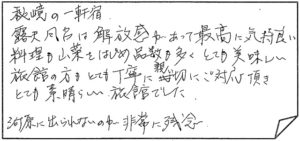 秘境の一軒宿
露天風呂は解放感があって最高に気持良い
料理も山菜をはじめ品数が多くとても美味しい
旅館の方もとても丁寧に親切にご対応頂き
とても素晴らしい旅館でした。
河原に出られないのが非常に残念